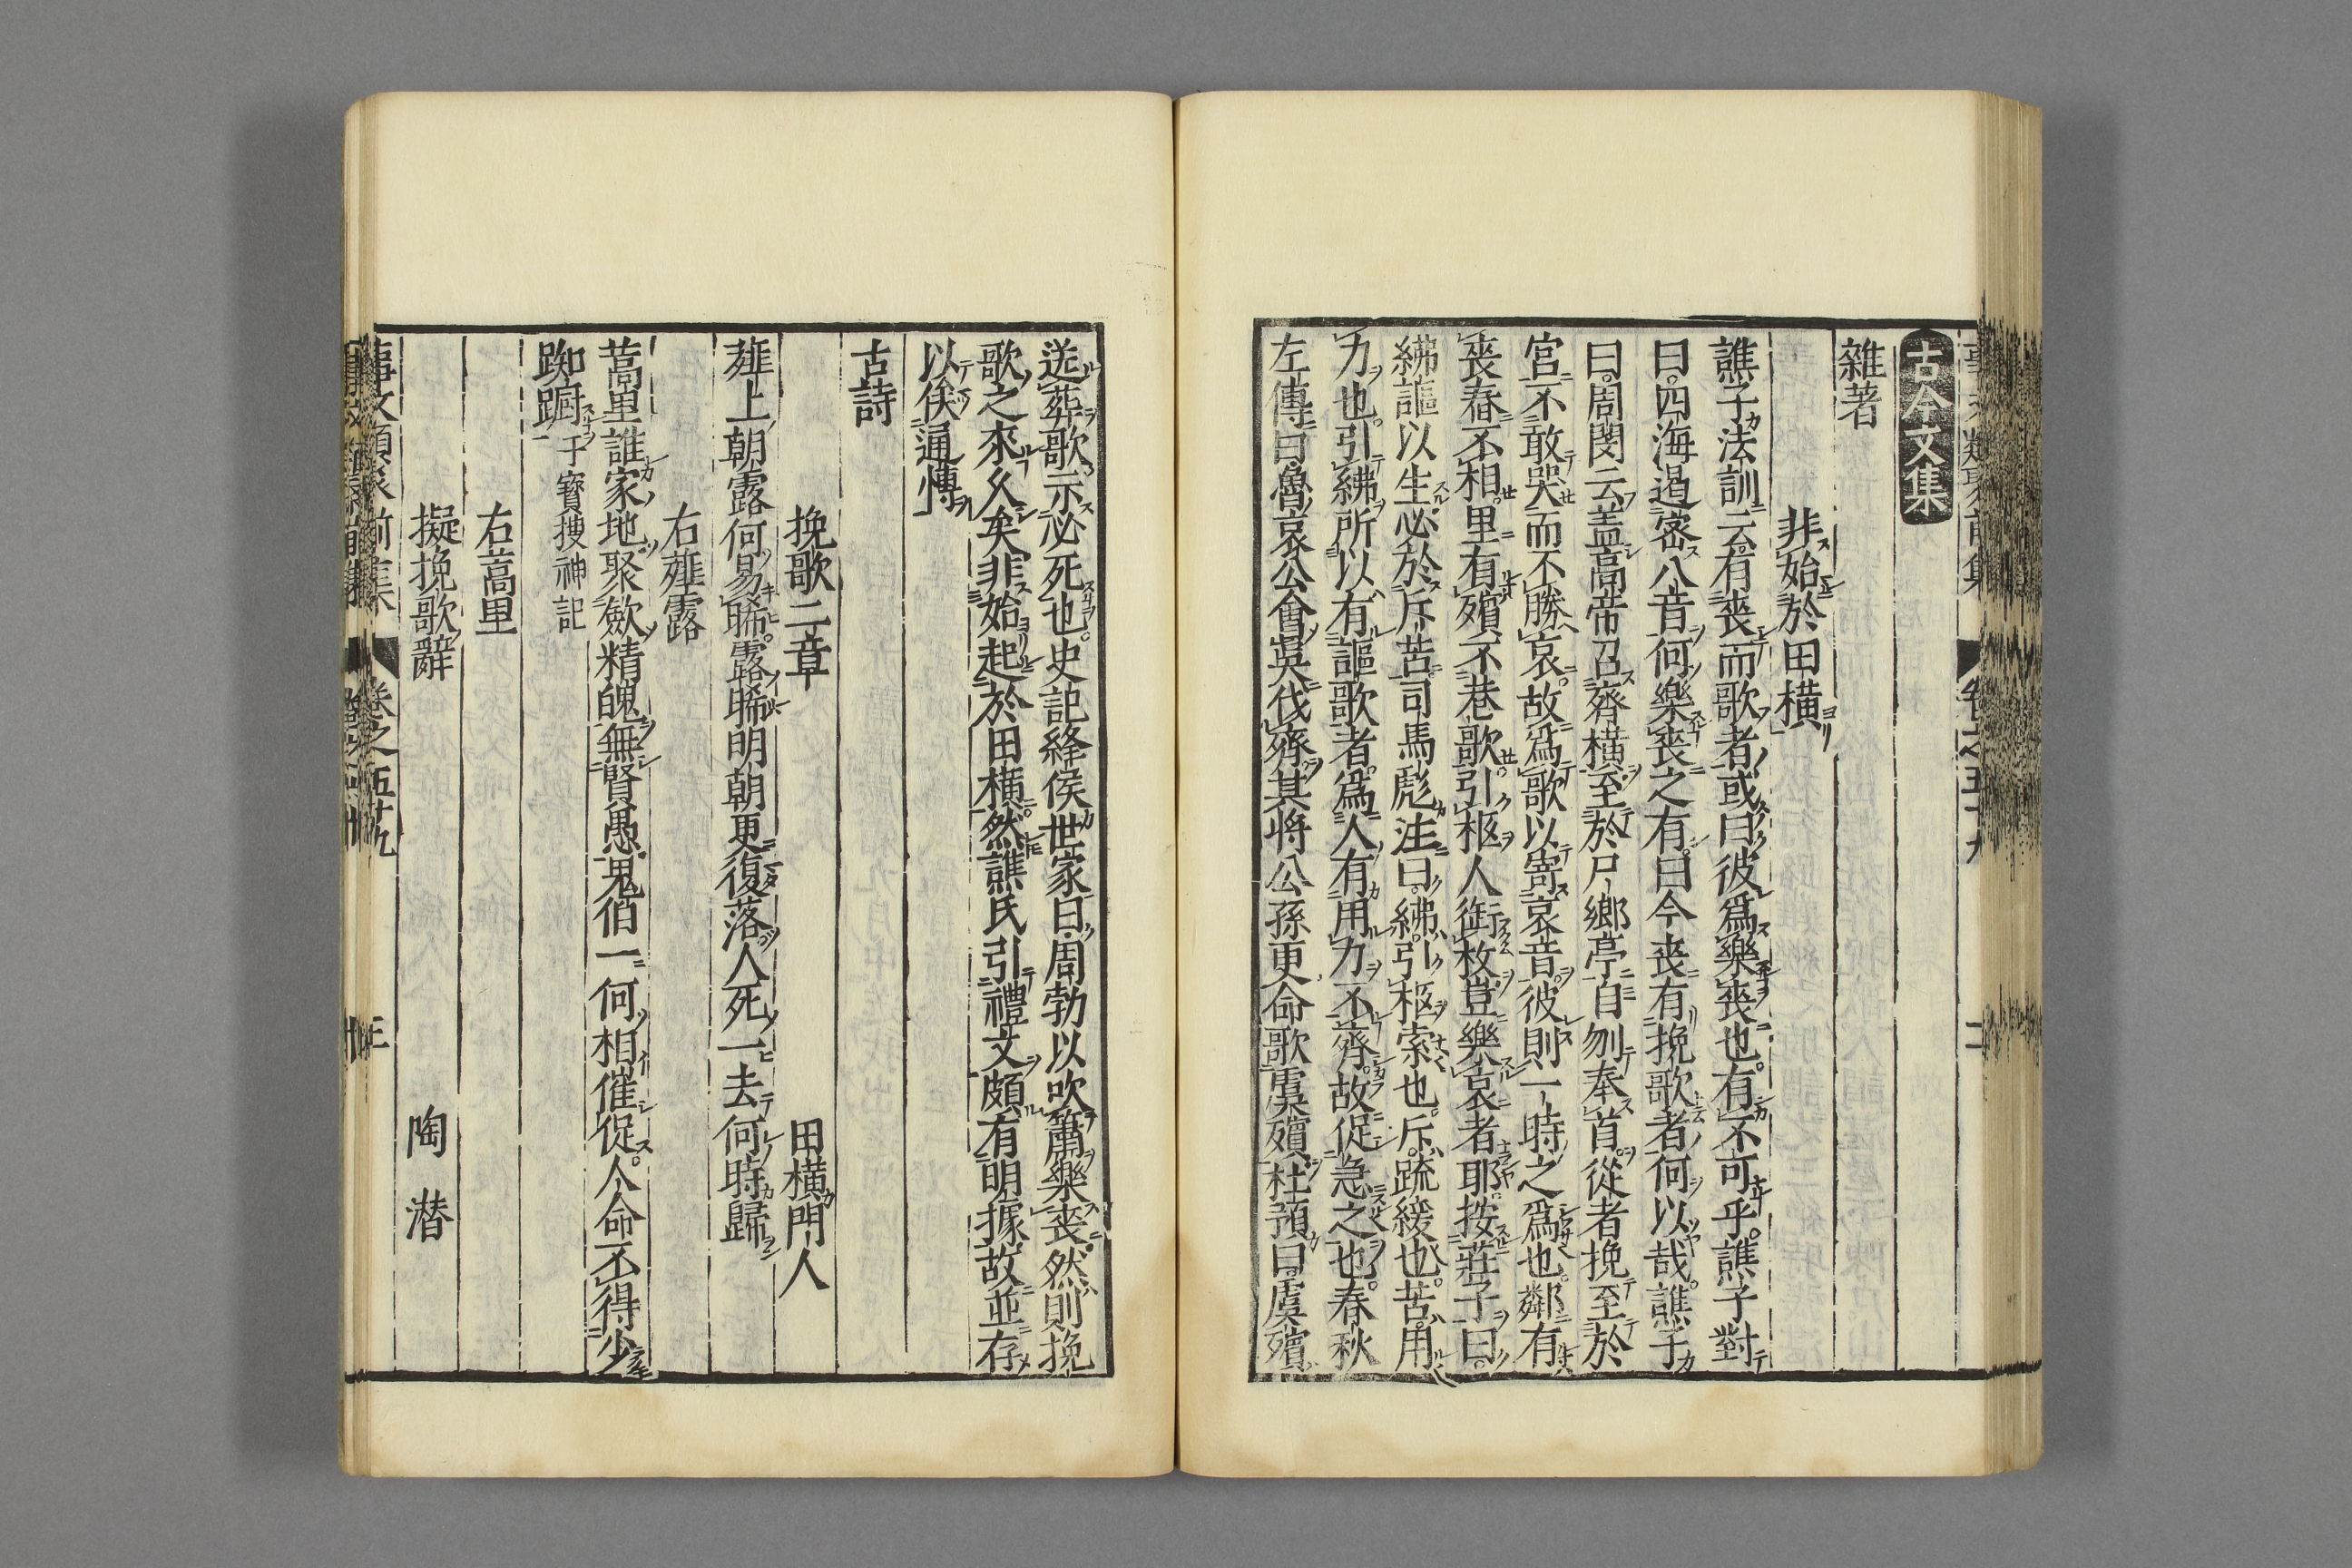 古今文集
雜著
非始於田横
譙子法訓云有喪而歌者或曰彼爲樂喪也有不可乎譙子對
曰四海遏密八音何樂喪之有曰今喪有挽歌者何以哉譙子
曰周閔云盖高帝召齊横至於尸鄉亭自刎奉首從者挽至於
宮不敢哭而不勝哀故爲歌以寄哀音彼則一時之爲也鄰有
喪舂不相里有殯不巷歌引柩人銜枚豈樂哀者耶按莊子曰
紼謳以生必於斥苦司馬彪注曰紼引柩索也斥疏緩也苦用
力也引紼所以有謳歌者爲人有用力不齊故促急之也春秋
左傳曰魯哀公會吳伐齊其将公孫更命歌虞殯杜預曰虞殯
送葬歌示必死也史記絳侯世家曰周勃以吹簫樂喪然則挽
歌之來久矣非始起於田横然譙氏引禮文頗有明據故並存
以俟通博
古詩
挽歌二章 田横門人
薤上朝露何易晞露晞明朝更復落人死一去何時歸
右薤露
蒿里誰家地聚歛精魄無賢愚鬼伯一何相催促人命不得少
踟蹰 于寳搜神記
右蒿里
擬挽歌辭 陶潜
事文類聚前集 卷之五十九 三